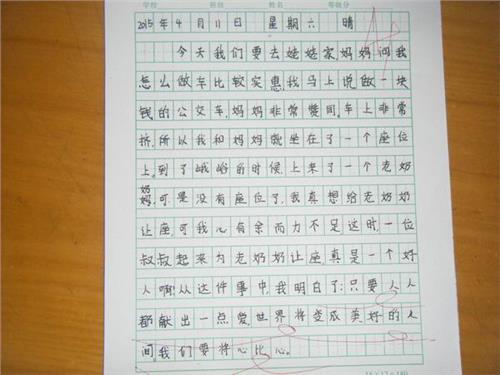 学校 班级 姓名 等级分
2015年4月11日 星期六 晴
今天我们要去姥姥家妈妈问我
怎么做车比较实惠,我马上说做一块
钱的公交车,妈妈非常赞同,车上非常
挤,所以我和妈妈就坐在了一个座位
上,到了峨峪的时候,上来了一个老奶
奶,可是没有座位了,我真想给老奶奶
让座可我心有余而力不足这时一位
叔叔起来为老奶奶让座,真是一个好
人啊!从这件事中,我明白了:只要人人
都献出一点爱,世界将变成美好的人
间我们要将心比心。